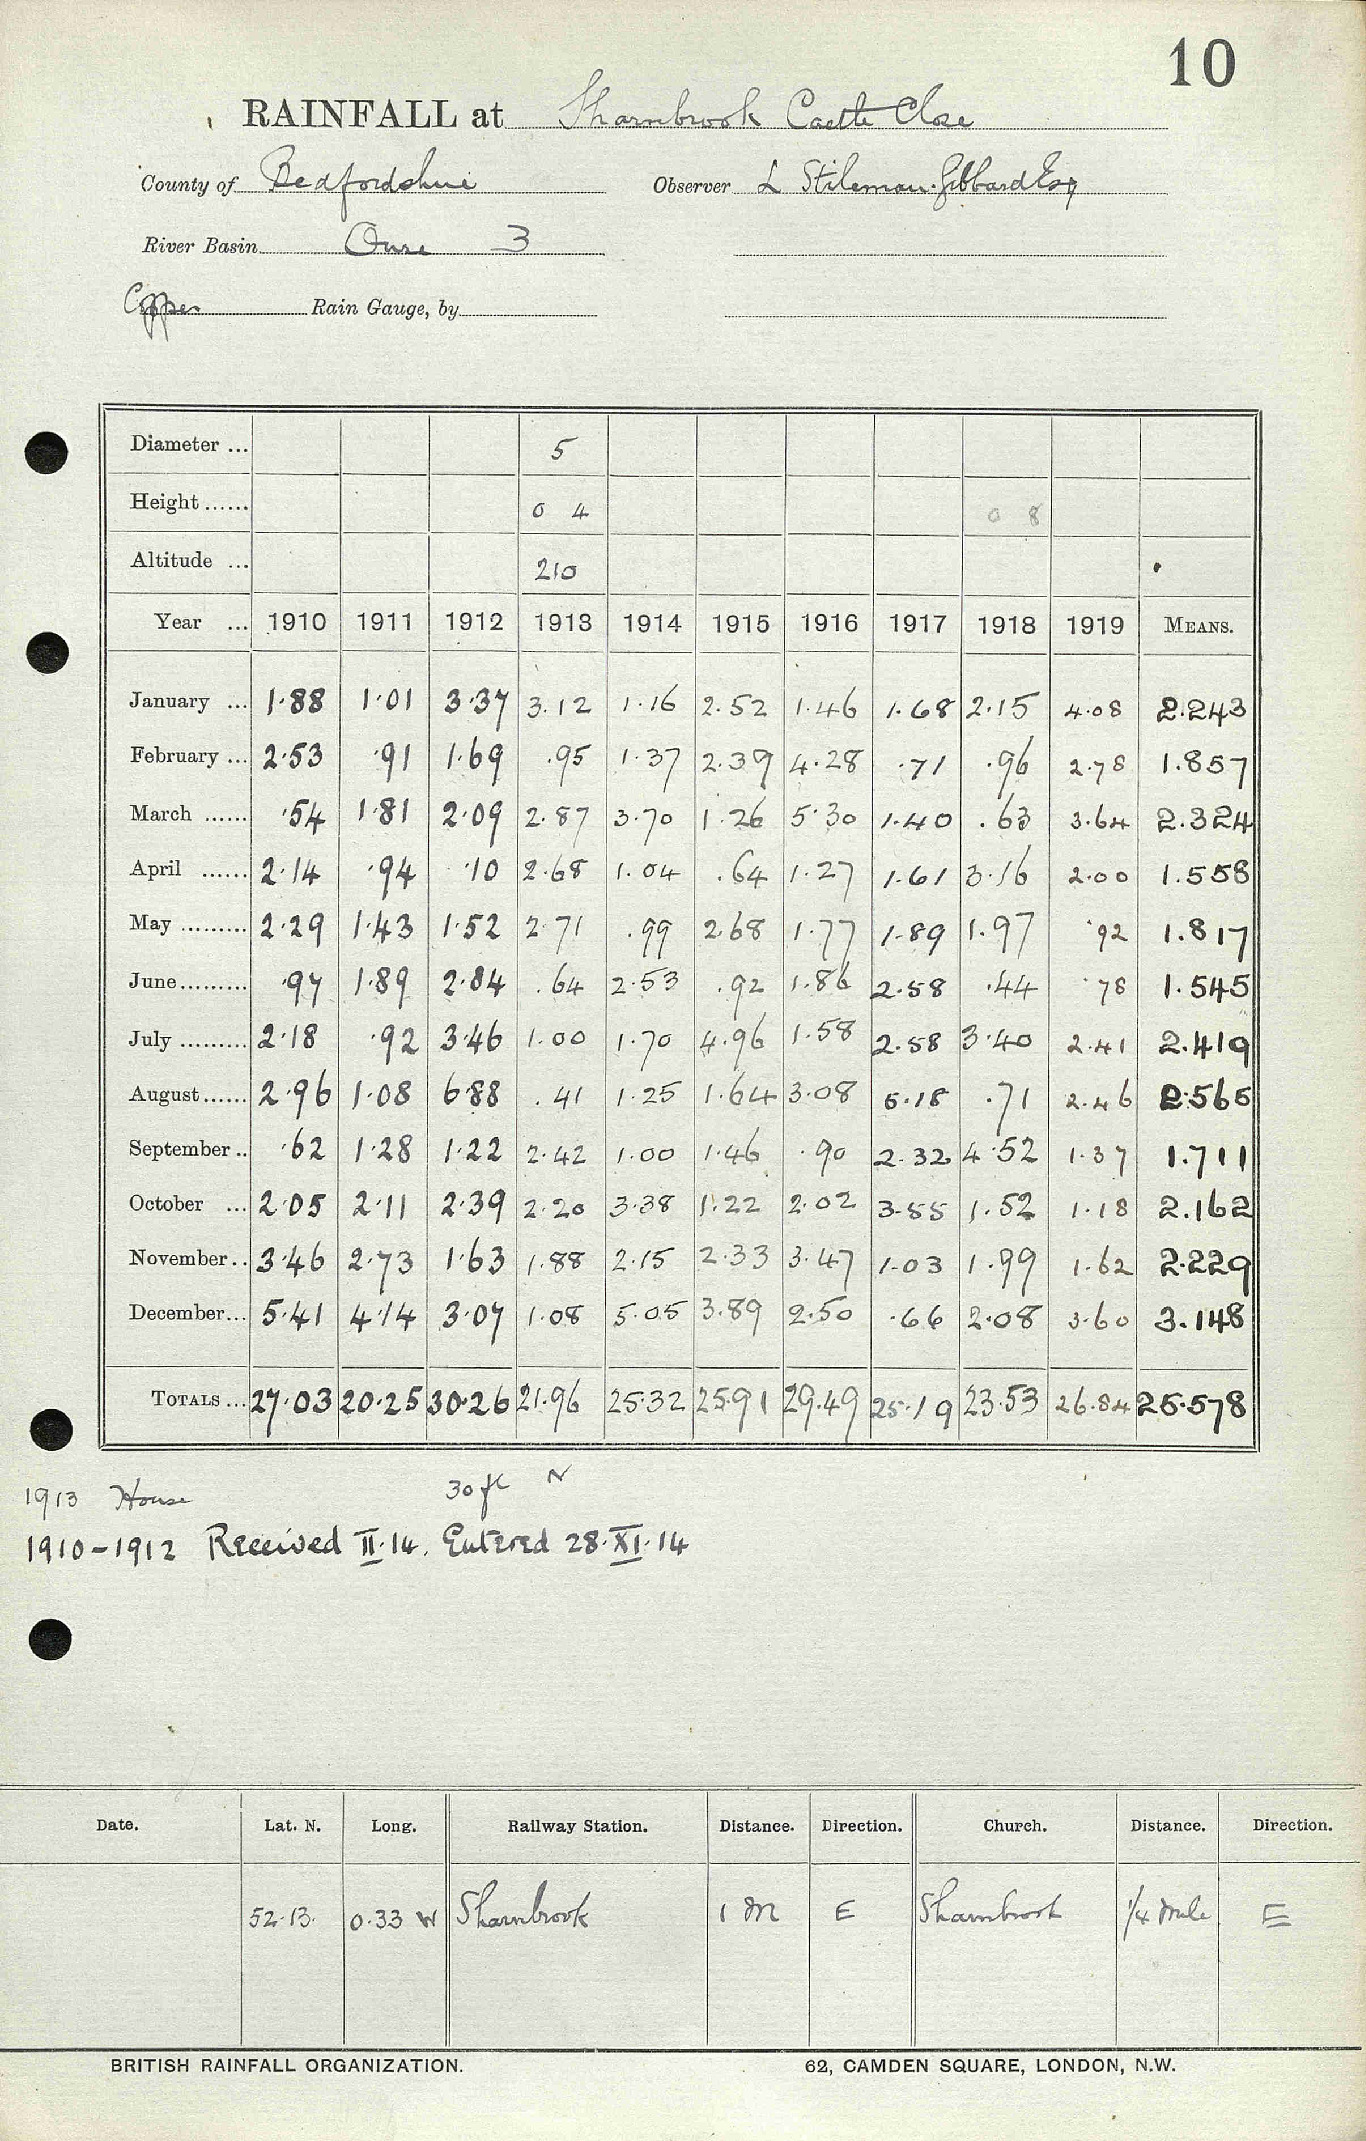 10
RAINFALL at Sharnbrook Castle Close
County of Bedfordshire Observer L Stileman-Gibbard Esq
River Basin Ouse 3
Copper Rain Gauge, by
Diameter ... 5
Height ...... 0 4 0 8
Altitude ... 210
Year ... 1910 1911 1912 1913 1914 1915 1916 1917 1918 1919 MEANS.
January ... 1.88 1.01 3.37 3.12 1.16 2.52 1.46 1.68 2.15 4.08 2.243
February ... 2.53 .91 1.69 .95 1.37 2.39 4.28 .71 .96 2.78 1.857
March ...... .54 1.81 2.09 2.87 3.70 1.26 5.30 1.40 .63 3.64 2.324
April ...... 2.14 .94 .10 2.68 1.04 .64 1.27 1.61 3.16 2.00 1.558
May ......... 2.29 1.43 1.52 2.71 .99 2.68 1.77 1.89 1.97 .92 1.817
June......... .97 1.89 2.84 .64 2.53 .92 1.86 2.58 .44 .78 1.545
July ......... 2.18 .92 3.46 1.00 1.70 4.96 1.58 2.58 3.40 2.41 2.419
August...... 2.96 1.08 6.88 .41 1.25 1.64 3.08 5.18 .71 2.46 2.565
September .. .62 1.28 1.22 2.42 1.00 1.46 .90 2.32 4.52 1.37 1.711
October ... 2.05 2.11 2.39 2.20 3.38 1.22 2.02 3.55 1.52 1.18 2.162
November.. 3.46 2.73 1.63 1.88 2.15 2.33 3.47 1.03 1.99 1.62 2.229
December... 5.41 4.14 3.07 1.08 5.05 3.89 2.50 .66 2.08 3.60 3.148
TOTALS ... 27.03 20.25 30.26 21.96 25.32 25.91 29.49 25.19 23.53 26.84 25.578
1913 House 30 ft N
1910-1912 Received II.14. Entered 28.XI.14
Date. Lat. N. Long. Railway Station. Distance. Direction. Church. Distance. Direction.
52.13. 0.33 W Sharnbrook 1 M E Sharnbrook 1/4 mile E
BRITISH RAINFALL ORGANIZATION. 62, CAMDEN SQUARE, LONDON, N.W.